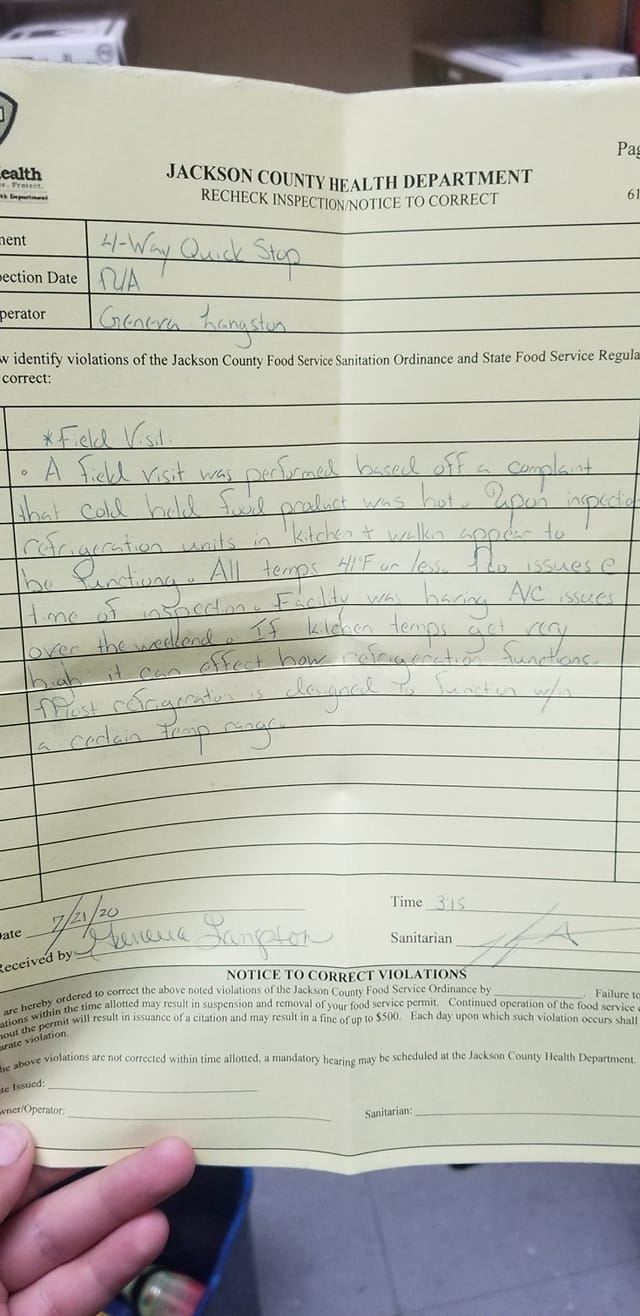 ealth
re. Protect.
th Department
Pag
JACKSON COUNTY HEALTH DEPARTMENT
RECHECK INSPECTION/NOTICE TO CORRECT
61
ment 4-Way Quick Stop
pection Date N/A
perator Geneva Langston
w identify violations of the Jackson County Food Service Sanitation Ordinance and State Food Service Regula
correct:
*Field Visit.
• A field visit was performed based off a complaint
that cold held food product was hot. Upon inspectio
refrigeration units in kitchen + walkin appear to
be functiong. All temps 41°F or less. No issues @
time of inspection. Facility was having A/C issues
over the weekend. If kitchen temps get very
high it can effect how refrigeration functions.
Most refrigeration is designed to function w/n
a certain temp range.
Date 7/21/20 Time 3:15
Received by Geneva Langston Sanitarian
NOTICE TO CORRECT VIOLATIONS
are hereby ordered to correct the above noted violations of the Jackson County Food Service Ordinance by . Failure to
ations within the time allotted may result in suspension and removal of your food service permit. Continued operation of the food service
hout the permit will result in issuance of a citation and may result in a fine of up to $500. Each day upon which such violation occurs shall
arate violation.
he above violations are not corrected within time allotted, a mandatory hearing may be scheduled at the Jackson County Health Department.
te Issued:
wner/Operator: Sanitarian: